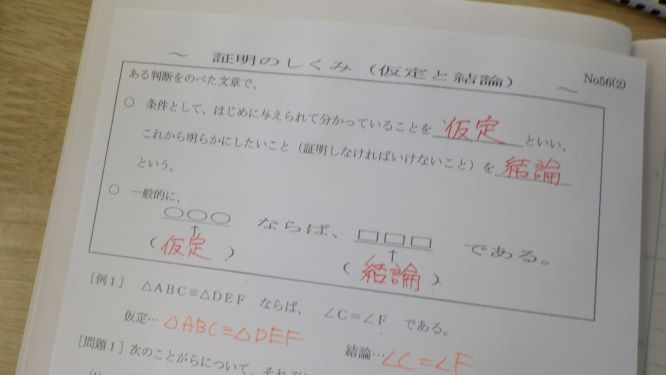 ～ 証明のしくみ（仮定と結論） ～
No56(2)
ある判断をのべた文章で、
○ 条件として、はじめに与えられて分かっていることを 仮定 といい、
これから明らかにしたいこと（証明しなければいけないこと）を 結論
という。
○ 一般的に、
○○○ ならば、 □□□ である。
↑ ↑
（仮定） （結論）
［例１］ △ＡＢＣ≡△ＤＥＦ ならば、 ∠Ｃ＝∠Ｆ である。
仮定… △ABC≡△DEF 結論…∠C=∠F
［問題１］次のことがらについて、それ